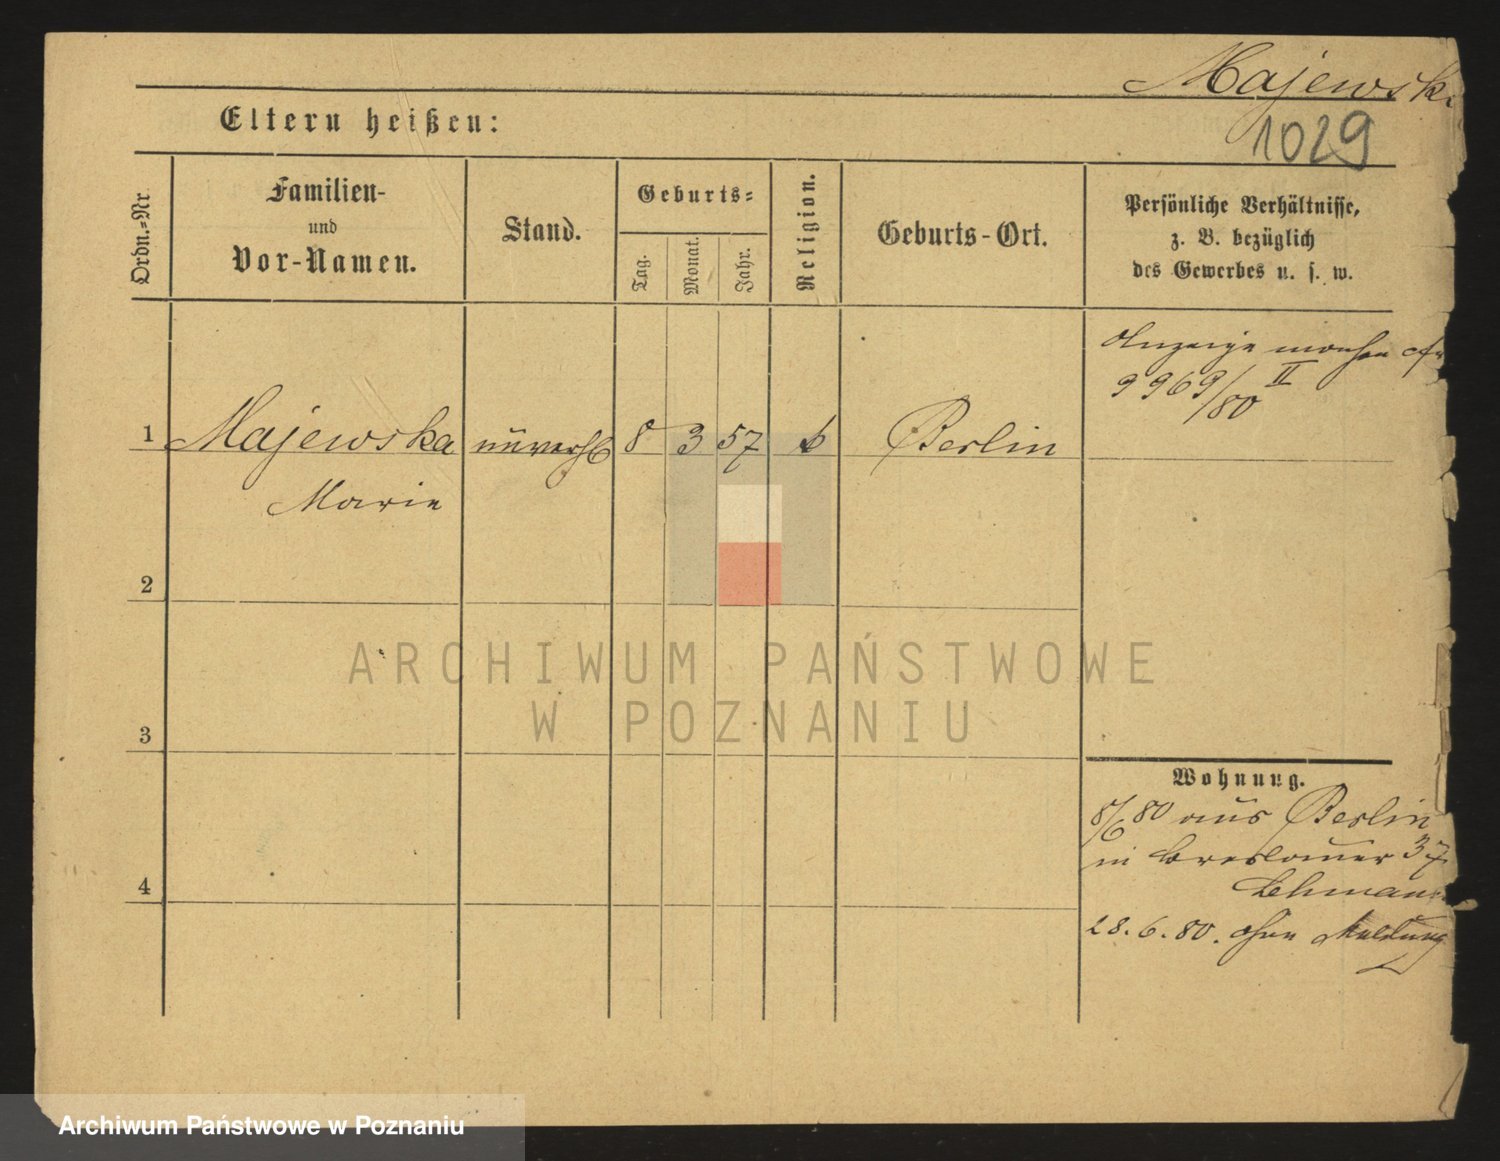 Majewski
1029
Eltern heißen:
Ordn.=Nr.
Familien-
und
Vor-Namen.
Stand.
Geburts=
Tag.
Monat.
Jahr.
Religion.
Geburts-Ort.
Persönliche Verhältnisse,
z. B. bezüglich
des Gewerbes u. s. w.
Anzeige
9969/80 II
1 Majewska unverh 8 3 57 k Berlin
Marie
2
3
4
Wohnung.
8/6 80 aus Berlin
in Breslauer 37
Lehmann
28.6.80. ohne Meldung
ARCHIWUM PAŃSTWOWE
W POZNANIU
Archiwum Państwowe w Poznaniu